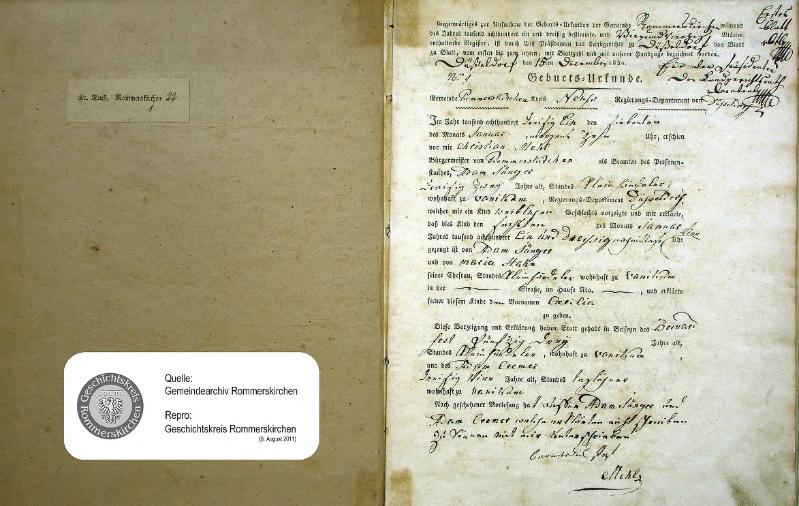 Kr. Neuß. Rommerskirchen 22
1
Geschichtskreis
Rommerskirchen
Quelle:
Gemeindearchiv Rommerskirchen
Repro:
Geschichtskreis Rommerskirchen
(8. August 2011)
Erstes
Blatt
Gegenwärtiges zur Aufnahme der Geburts-Urkunden der Gemeinde Rommerskirchen während
des Jahres tausend achthundert ein und dreißig bestimmte, und Vierundvierzig Blätter
enthaltende Register, ist durch Uns Präsidenten des Landgerichts zu Düsseldorf von Blatt
zu Blatt, vom ersten bis zum letzten, mit Blattzahl und mit unserm Handzuge bezeichnet worden.
Düsseldorf den 15ten December 1830.
Für den Präsidenten
Der Landgerichtsrath
No. 1
Geburts-Urkunde.
Gemeinde Rommerskirchen Kreis Neuss Regierungs-Departement von Düsseldorf
Im Jahr tausend achthundert dreißig Ein den siebenten
des Monats Januar morgens Zehn Uhr, erschien
vor mir Christian Mehl
Bürgermeister von Rommerskirchen als Beamten des Personen-
standes, Adam Sünger
dreißig zwey Jahre alt, Standes
wohnhaft zu Vanikum Regierungs-Departement Düsseldorf,
welcher mir ein Kind weiblichen Geschlechts vorzeigte und mir erklärte,
daß dies Kind den fünften des Monats Januar
Jahres tausend achthundert Ein und dreissig nachmittags Uhr
gezeugt ist von Adam Sünger
und von Maria Hahn
seiner Ehefrau, Standes wohnhaft zu Vanikum
in der Straße, im Hause Nro. , und erklärte
ferner diesem Kinde den Vornamen Cäcilia
zu geben.
Diese Vorzeigung und Erklärung haben Statt gehabt in Beiseyn des
fünfzig Jahre alt,
Standes , wohnhaft zu Vanikum,
und des Cremer
dreißig Jahre alt, Standes Taglöhner
wohnhaft zu Vanikum
Nach geschehener Vorlesung hat Adam Sünger und
Adam Cremer welche erklärten nicht schreiben
zu können mit mir unterschrieben
Mehl